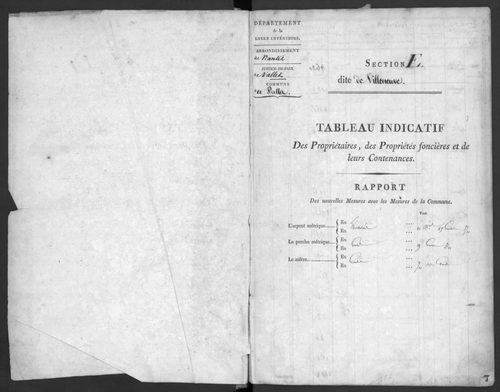 DÉPARTEMENT
de la
LOIRE INFÉRIEURE.
ARRONDISSEMENT
de Nantes
JUSTICE DE PAIX
de Vallet
COMMUNE
de Pallet
SECTION E.
dite de Villeneuve.
TABLEAU INDICATIF
Des Propriétaires, des Propriétés foncières et de
leurs Contenances.
RAPPORT
Des nouvelles Mesures avec les Mesures de la Commune.
Vaut
L'arpent métrique
En
En
La perche métrique
En
En
Le mètre
En
En